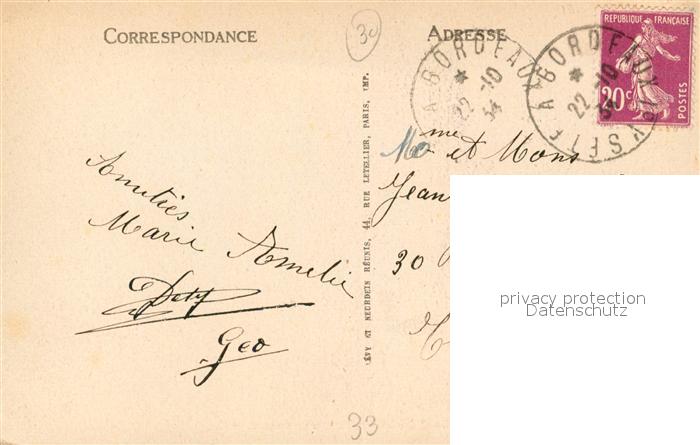 CORRESPONDANCE
ADRESSE
30
REPUBLIQUE FRANÇAISE
20c
POSTES
BORDEAUX
22 -10
34
BORDEAUX
22 -10
34
Mme et Mons
Jean
30
Amitiés
Marie Amelie
Doty
Geo
LÉVY ET NEURDEIN RÉUNIS, 44, RUE LETELLIER, PARIS, IMP.
33
privacy protection
Datenschutz